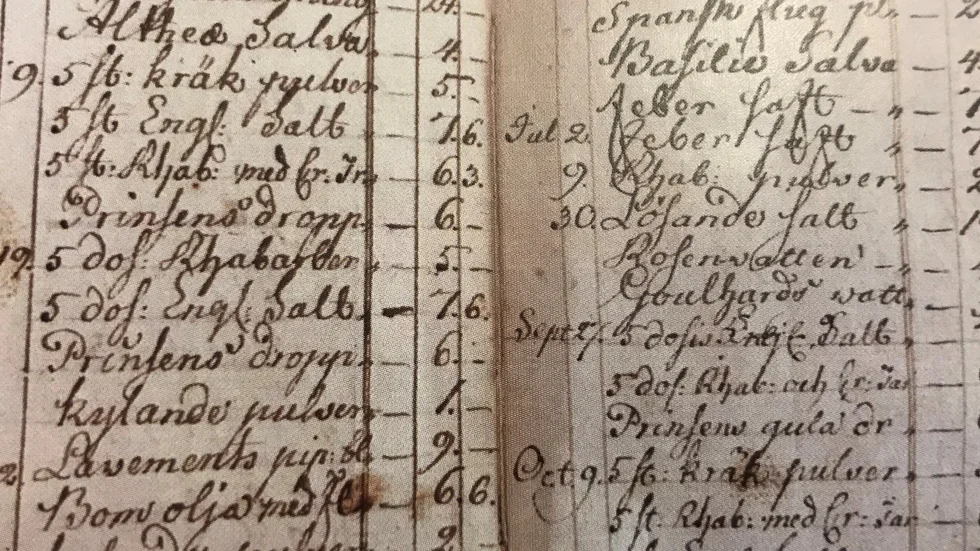 24. –
Althea Salva – 4. –
9. 5 st: kräk pulver – 5. –
5 st Engl: Salt – 7. 6.
5 st: Rhab: med Cr: Tr. – 6. 3.
Prinsens dropp. – 6. –
19. 5 dos: Rhabarber – 5. –
5 dos: Engl: Salt – 7. 6.
Prinsens dropp. – 6. –
kylande pulver – 1. –
2. Lavements pip: – 9. –
Bom olja med – 6. 6.
Spansk flug pl. –
Basilic Salva –
feber saft – "
Jul 2. feber saft "
9. Rhab: pulver "
30. Lösande salt "
Rosenvatten –
Goulhards vatt.
Sept 27. 5 dosis Engl. Salt "
5 dos: Rhab: och Cr: Tar
Prinsens gula dr "
Oct 9. 5 st: kräk pulver "
5 st: Rhab: med Cr: Tar